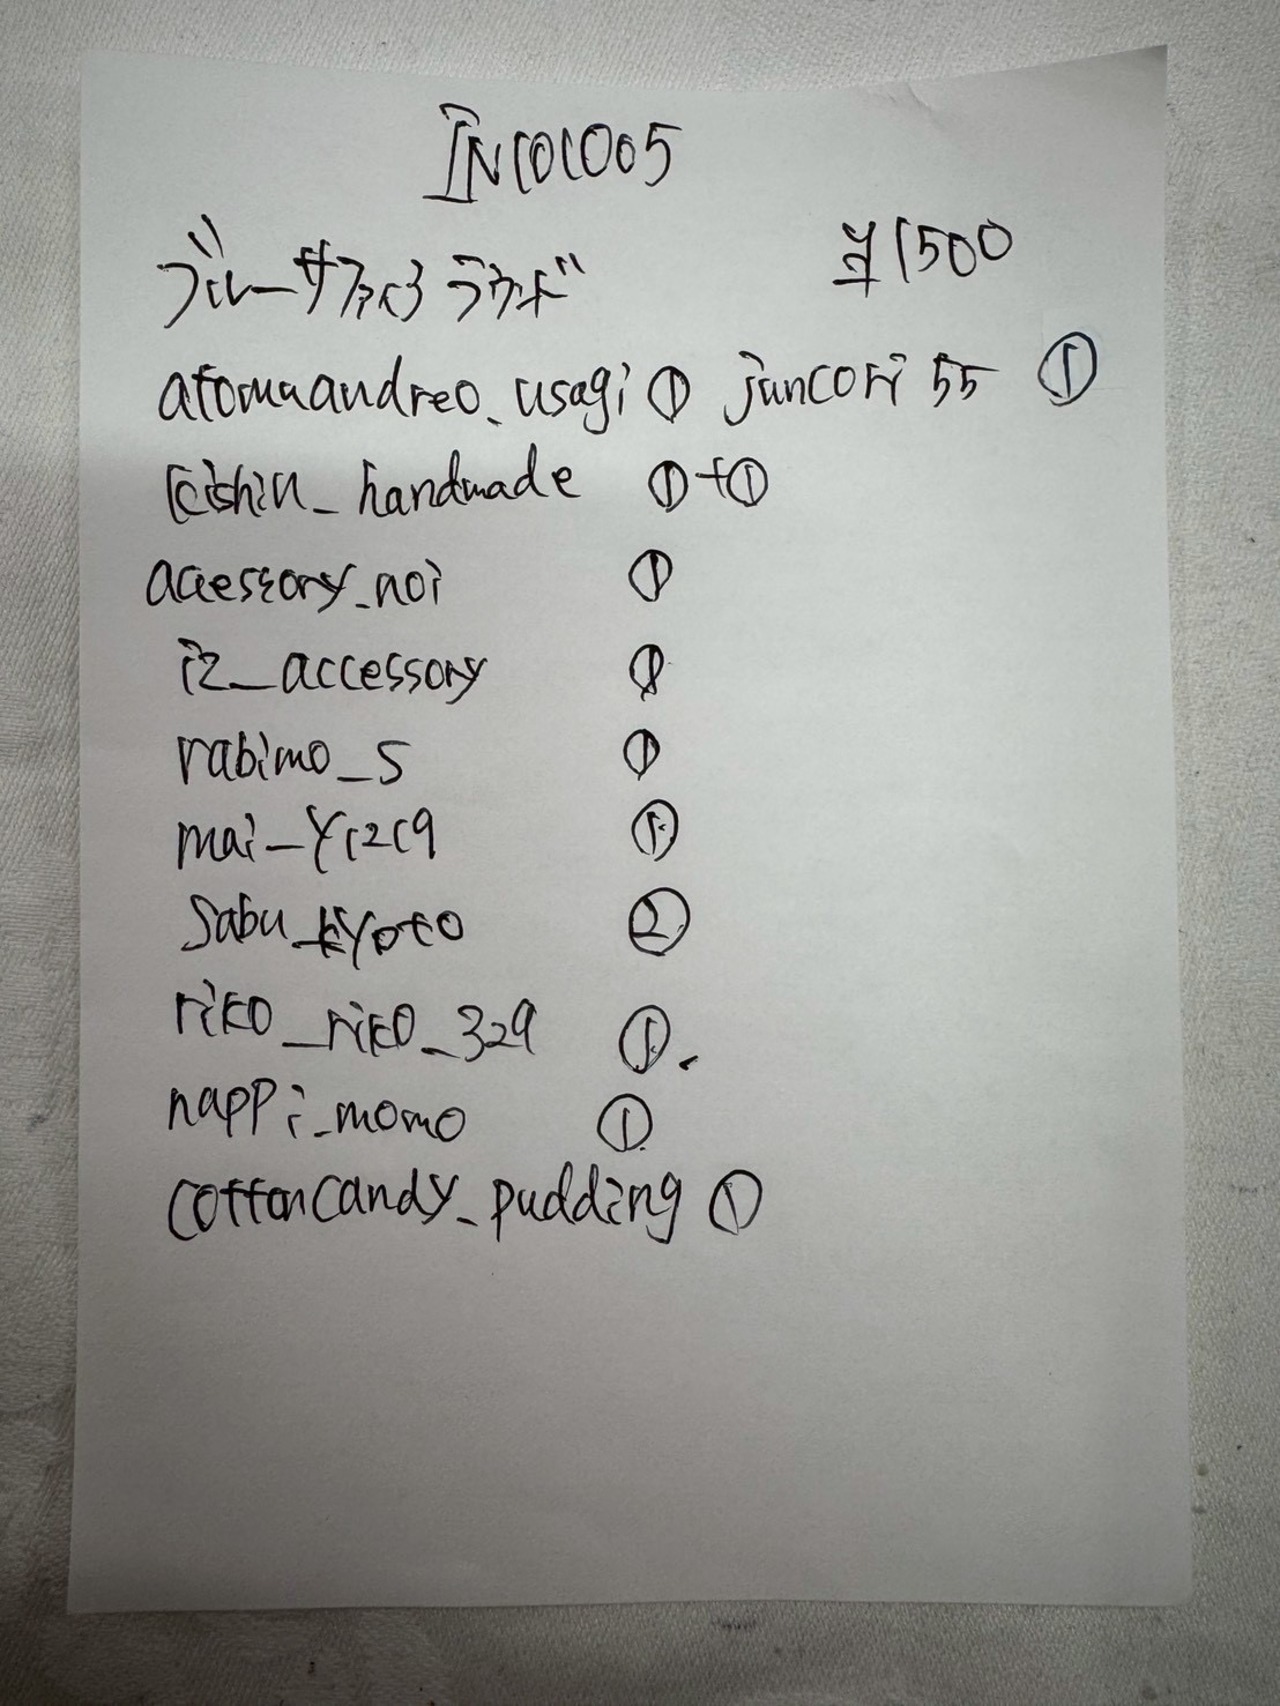 IN101005
ブルーサファイア ラウンド ¥1500
atomuandreo_usagi ① juncori55 ①
keishin_handmade ①+①
accessory_noi ①
iz_accessory ①
rabimo_s ①
mai_y1219 ①
sabu_kyoto ②
riko_riko_329 ①.
nappi_momo ①
cottoncandy_pudding ①